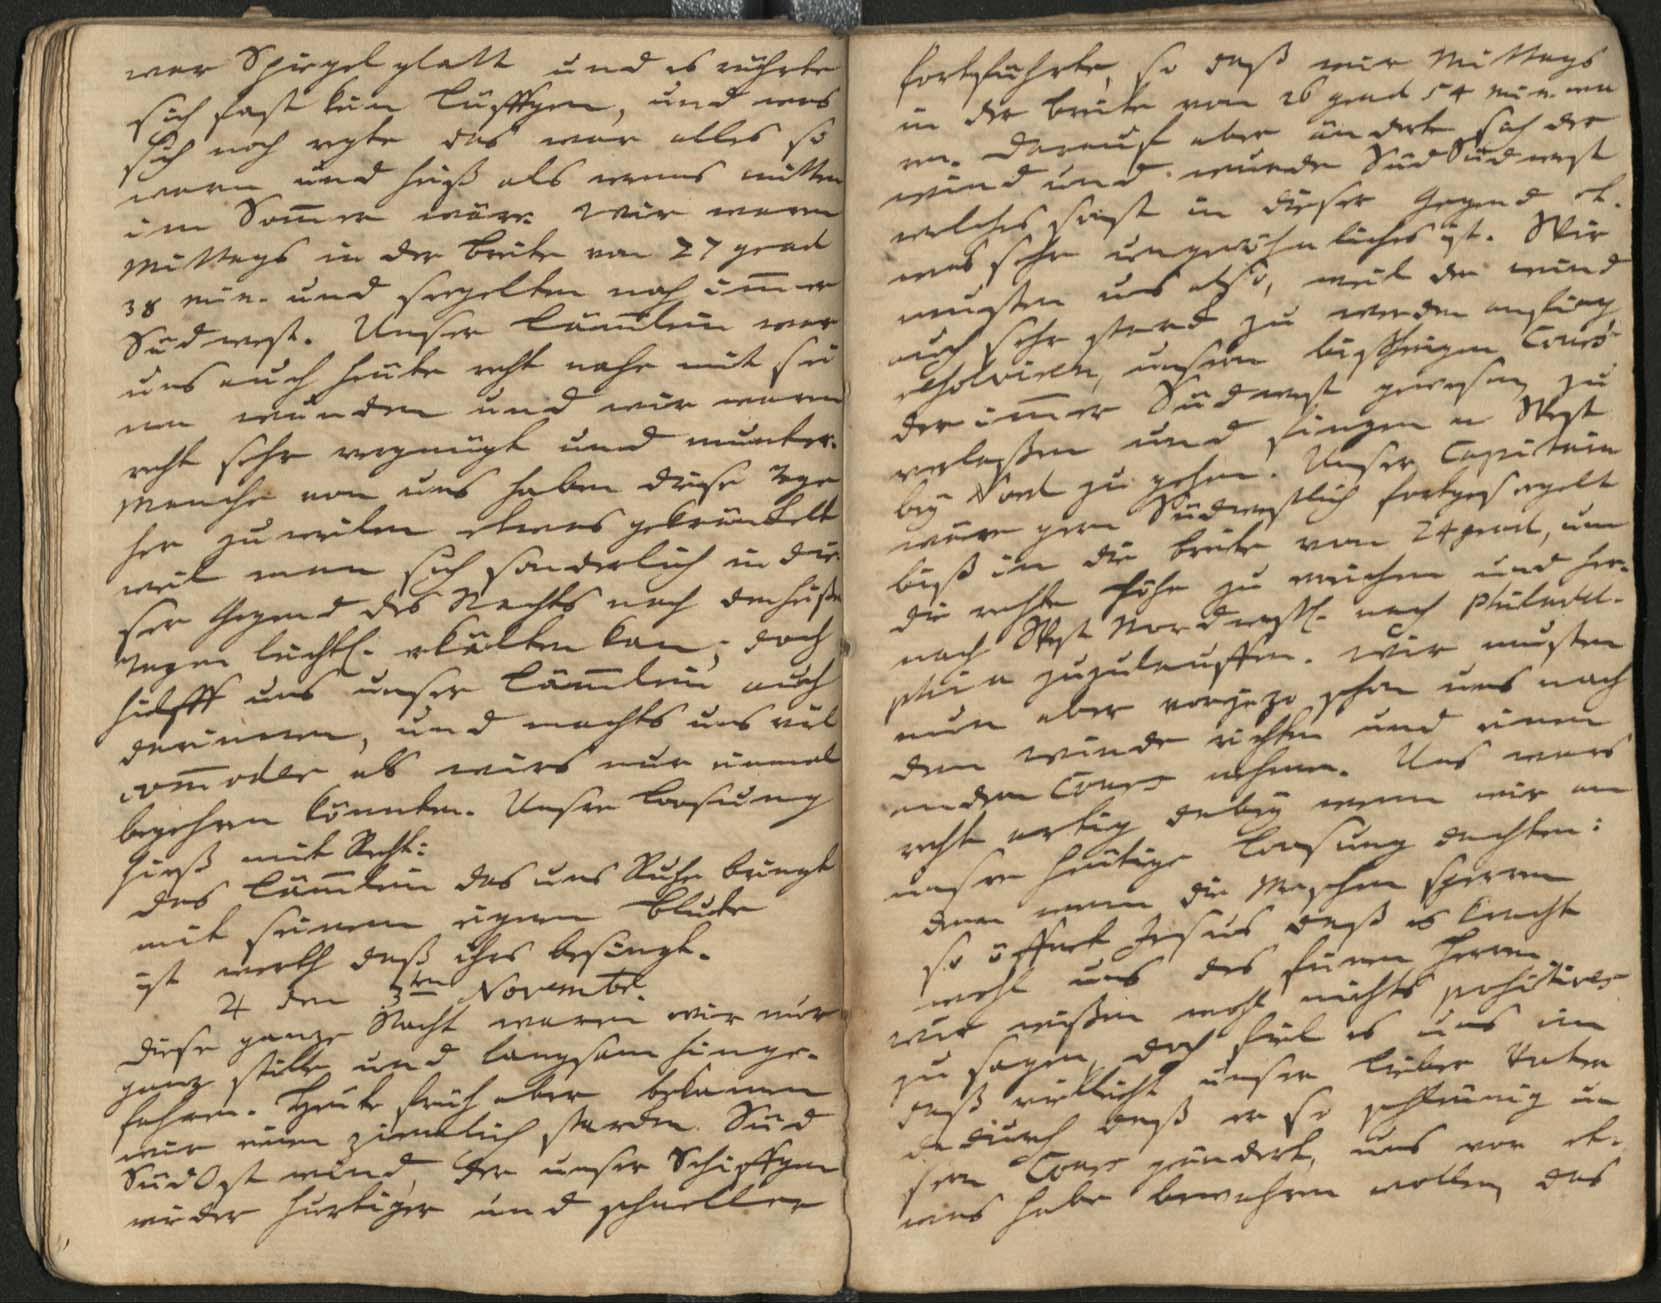 war Spiegel glatt und es rührte
sich fast kein Lüfftgen, und was
sich noch regte das war alles so
warm und heiß als wenns mitten
im Som̄er wäre. Wir waren
Mittags in der Breite von 27 grad
38 min. und seegelten noch im̄er
Südwest. Unser Läm̄lein war
uns auch heute recht nahe mit sei
nen wunden und wir waren
recht sehr vergnügt und munter.
Manche von uns haben diese Tage
her zuweilen etwas gekränkelt
weil man sich sonderlich in die
ser Gegend des Nachts nach den heißen
Tagen leichtl. erkälten kan; doch
hielff uns unser Läm̄lein auch
darinnen, und machts uns viel
com̄oder als wirs nur einmal
begehren könnten. Unsre Loosung
hieß mit Recht:
das Läm̄lein das uns Ruhe bringt
mit seinem eignen Blute
ist werth daß ihrs besingt.
♃ den 3ten Novembr.
diese ganze Nacht waren wir nur
ganz stille und langsam hinge-
fahren. Heute früh aber bekamen
wir einen ziemlich starcken Süd
SüdOst wind, der unser Schiffgen
wieder hurtiger und schneller
fortführte, so daß wir Mittags
in der Breite von 26 grad 54 min. wa
ren. Darauf aber änderte sich der
wind und wurde SüdSüdwest
welches sonst in dieser Gegend et-
was sehr ungewöhnliches ist. Wir
musten uns also, weil der wind
auch sehr starck zu werden anfieng
resolviren, unsern bißherigen Cours
der im̄er Südwest gewesen, zu
verlaßen und fingen an West
bey Nord zu gehen. Unser Capitain
wäre gern Südwestlich fortgesegelt
biß in die Breite von 24 grad, um
die rechte Höhe zu erreichen und her-
nach West Nordwestl. nach Philadel-
phia zuzulauffen. Wir musten
nun aber vorjezo schon uns nach
dem winde richten und einen
andern Cours nehmen. Uns wars
recht artig dabey wenn wir an
unsre heutige Loosung dachten:
denn wenn die Menschen sperren
so öffnet Jesus daß es kracht
wohl uns des feinen Herren.
wir wißen wohl nichts positives
zu sagen, doch fiel es uns ein
daß vielleicht unser lieber Vater
dadurch daß er so schleunig un
sern Cours geändert, uns vor et-
was habe bewahren wollen, das